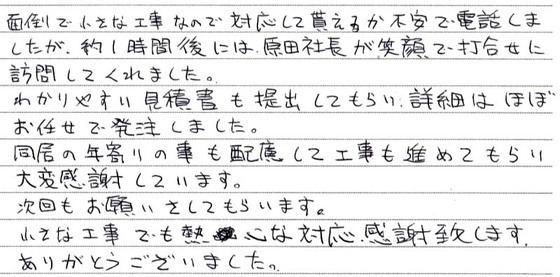 面倒で小さな工事なので対応して貰えるか不安で電話しま
したが、約1時間後には、原田社長が笑顔で打合せに
訪問してくれました。
わかりやすい見積書も提出してもらい、詳細はほぼ
お任せで発注しました。
同居の年寄りの事も配慮して工事も進めてもらい
大変感謝しています。
次回もお願いさしてもらいます。
小さな工事でも熱心な対応、感謝致します。
ありがとうございました。